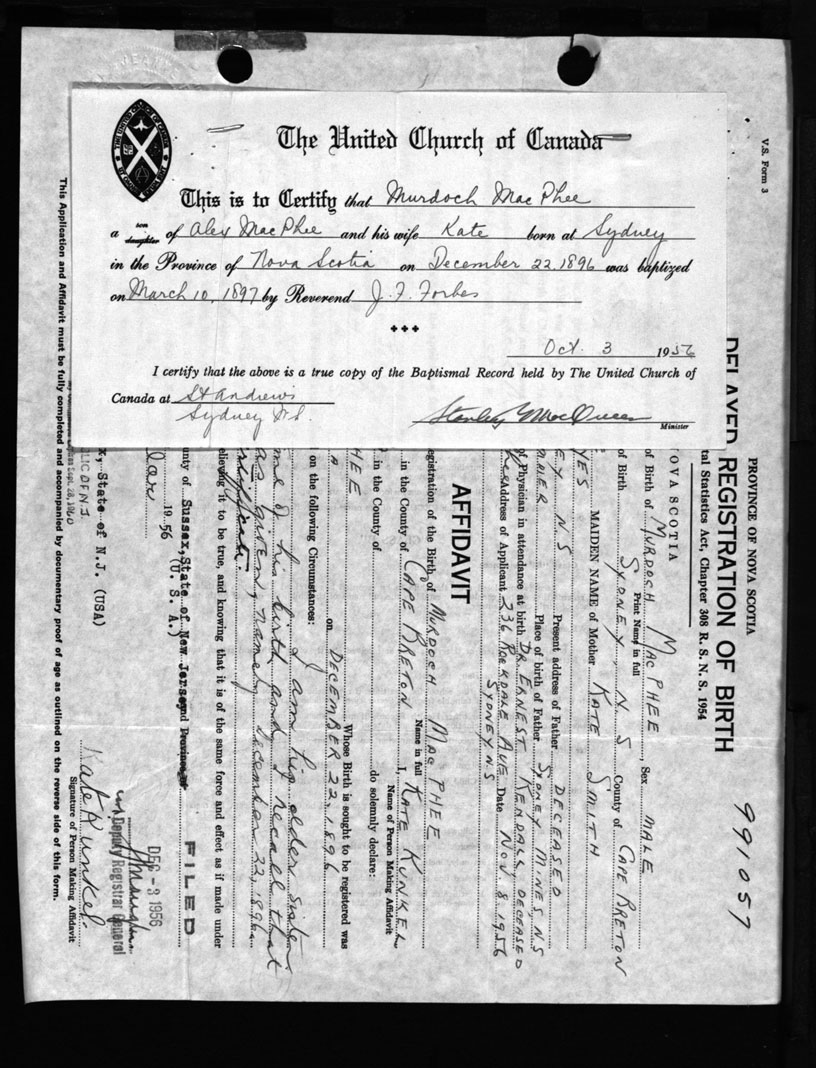 The United Church of Canada
This is to Certify that Murdoch MacPhee
a son daughter of Alex MacPhee and his wife Kate born at Sydney
in the Province of Nova Scotia on December 22, 1896 was baptized
on March 10, 1897 by Reverend J. F. Forbes
Oct. 3 1956
I certify that the above is a true copy of the Baptismal Record held by The United Church of
Canada at St Andrews
Sydney N.S.
Minister
V.S. Form 3
991057
PROVINCE OF NOVA SCOTIA
DELAYED REGISTRATION OF BIRTH
tal Statistics Act, Chapter 308 R. S. N. S. 1954
OVA SCOTIA
of Birth of MURDOCH MAC PHEE, Sex MALE
Print Name in full
of Birth SYDNEY, N S County of CAPE BRETON
YES MAIDEN NAME of Mother KATE SMITH
EY N.S Present address of Father DECEASED
Place of birth of Father SYDNEY MINES N.S
of Physician in attendance at birth DR. ERNEST KENDALL, DECEASED
Address of Applicant 236 ROCKDALE AVE Date NOV 8 1956
SYDNEY, N.S
AFFIDAVIT
egistration of the Birth of MURDOCH MAC PHEE
Name in full
in the County of CAPE BRETON I, KATE KUNKEL
Name of Person Making Affidavit
in the County of do solemnly declare:
HEE Whose Birth is sought to be registered was
on DECEMBER 22, 1896
on the following Circumstances:
I am his older sister
me of his birth and I recall that
as given, namely December 22, 1896
elieving it to be true, and knowing that it is of the same force and effect as if made under
unty of Sussex, State of New Jersey and Province of
(U. S. A.)
1956
FILED
DEC - 3 1956
Deputy Registrar General
x, State of N.J. (USA)
Kate Kunkel
Signature of Person Making Affidavit
This Application and Affidavit must be fully completed and accompanied by documentary proof of age as outlined on the reverse side of this form.